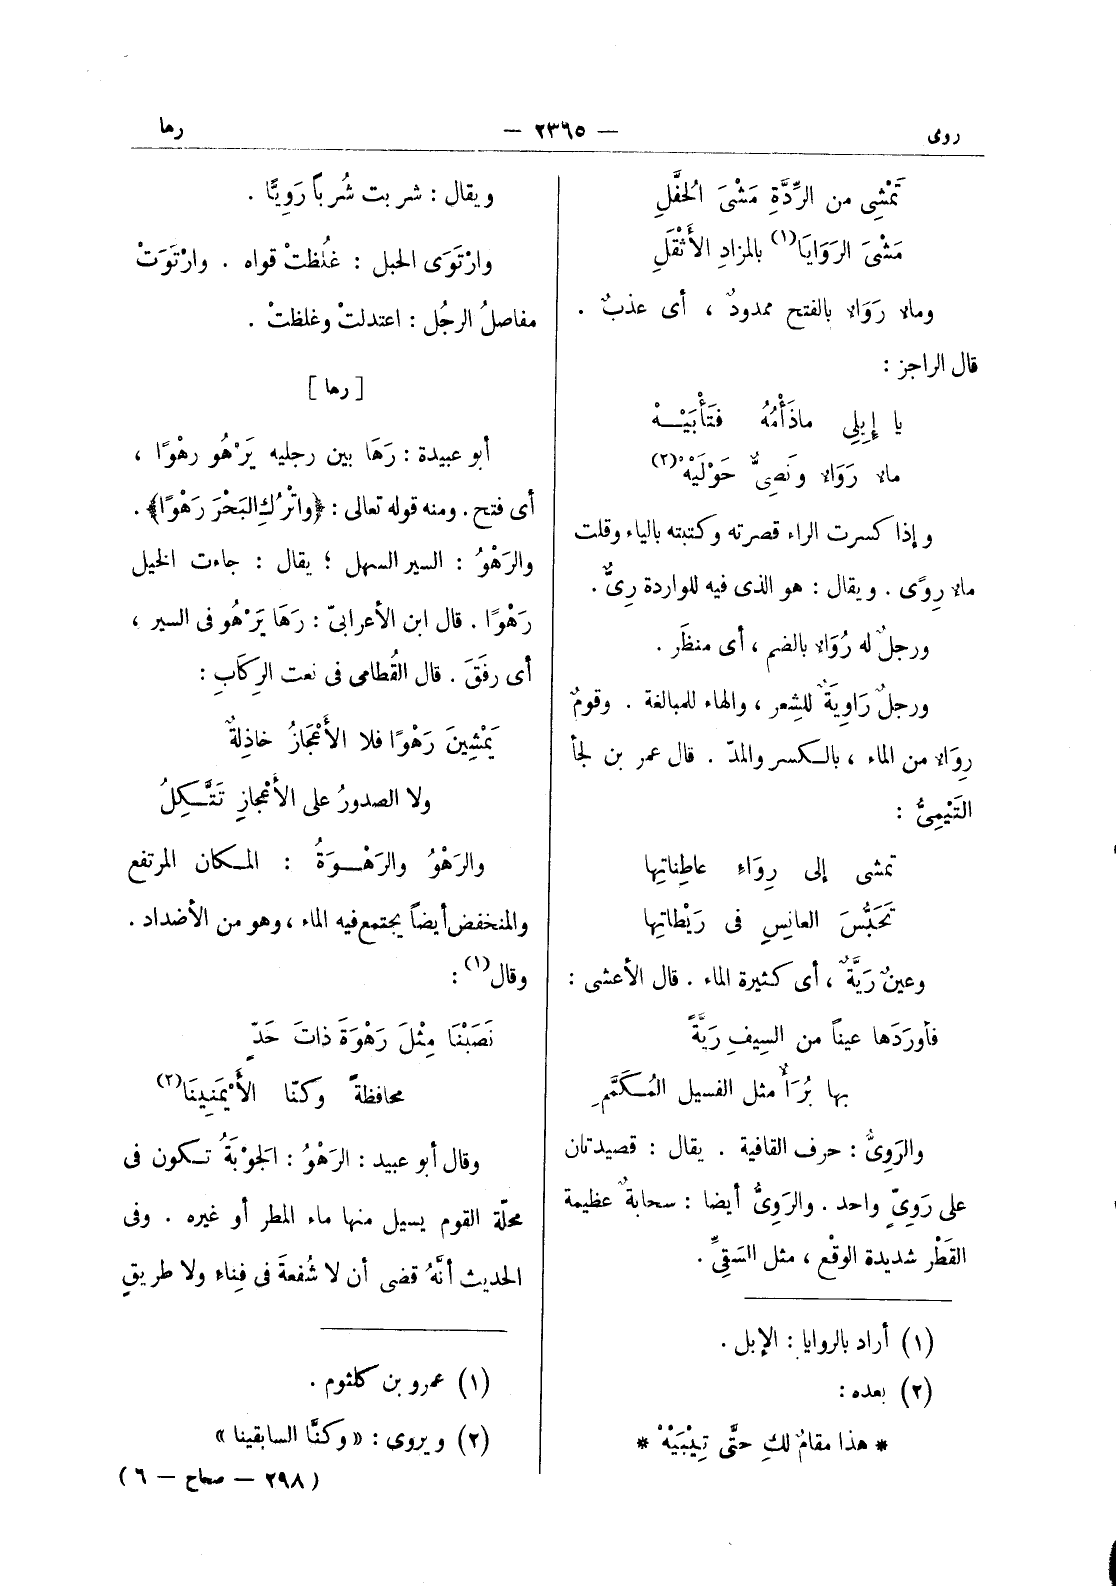 روى
— ٢٣٦٥ —
رها
تَمْشِى من الرِّدَّةِ مَشْىَ الحُفَّلِ
مَشْىَ الرَوَايَا(١) بالمزادِ الأَثْقَلِ
وماءٌ رَوَاءٌ بالفتح ممدودٌ ، أى عذبٌ .
قال الراجز :
يا إبِلِى ماذَأْمُهُ فَتَأْبَيْهْ
ماءٌ رَوَاءٌ ونَصِىٌّ حَوْلَيْهْ(٢)
وإذا كسرت الراء قصرته وكتبته بالياء وقلت
ماءٌ رِوًى . ويقال : هو الذى فيه للواردة رِىٌّ .
ورجلٌ له رُوَاءٌ بالضم ، أى منظَر .
ورجلٌ رَاوِيَةٌ للشِعر ، والهاء للمبالغة . وقومٌ
رِوَاءٌ من الماء ، بالكسر والمدّ . قال عمر بن لجأ
التَيْمِىُّ :
تمشى إلى رِوَاءِ عاطِناتِها
تَحَبُّسَ العانِسِ فى رَيْطاتِها
وعينٌ رَيَّةٌ ، أى كثيرة الماء . قال الأعشى :
فأورَدَها عيناً من السِيفِ رَيَّةً
بها بُرَأٌ مثل الفسيل المُكَمَّمِ
والرَوِىُّ : حرف القافية . يقال : قصيدتان
على رَوِىٍّ واحد . والرَوِىُّ أيضا : سحابةٌ عظيمة
القَطْر شديدة الوقْع ، مثل السَقِىِّ .
(١) أراد بالروايا : الإبل .
(٢) بعده :
* هذا مقامٌ لكِ حتَّى تِيْبَيْهْ *
ويقال : شربت شُرباً رَوِيًّا .
وارْتَوَى الحبل : غلُظتْ قواه . وارْتَوَتْ
مفاصلُ الرجُل : اعتدلتْ وغلظتْ .
[ رها ]
أبو عبيدة : رَهَا بين رجليه يَرْهُو رهْوًا ،
أى فتح . ومنه قوله تعالى : ﴿واتْرُكِ البَحْرَ رَهْوًا﴾ .
والرَهْوُ : السير السهل ؛ يقال : جاءت الخيل
رَهْوًا . قال ابن الأعرابىّ : رَهَا يَرْهُو فى السير ،
أى رفَقَ . قال القُطامى فى نعت الركَابِ :
يَمْشِينَ رَهْوًا فلا الأَعْجَازُ خاذِلةٌ
ولا الصدورُ على الأَعْجازِ تَتَّكِلُ
والرَهْوُ والرَهْوَةُ : المكان المرتفع
والمنخفض أيضاً يجتمع فيه الماء ، وهو من الأضداد .
وقال(١) :
نَصَبْنَا مِثْلَ رَهْوَةَ ذاتَ حَدٍّ
محافظةً وكنّا الأَيْمَنِينَا(٢)
وقال أبو عبيد : الرَهْوُ : الجَوْبَةُ تكون فى
محلّة القوم يسيل منها ماء المطر أو غيره . وفى
الحديث أنَّهُ قضى أن لا شُفعةَ فى فِناءٍ ولا طريقٍ
(١) عمرو بن كلثوم .
(٢) ويروى : « وكنَّا السابقينا »
( ٢٩٨ — صحاح — ٦ )